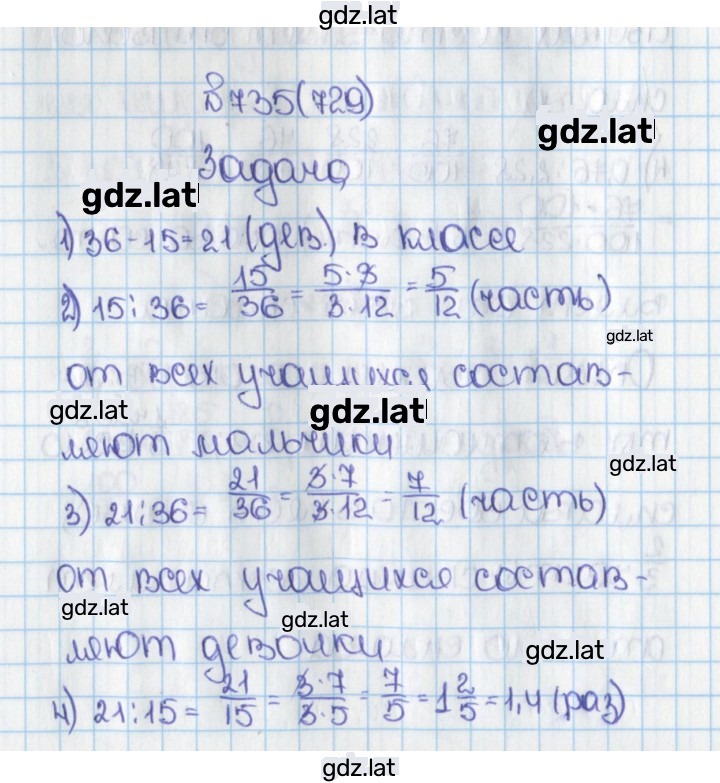 gdz.lat
№735(729)
gdz.lat
Задача
gdz.lat
1) 36-15=21(дев.) в классе
2) 15:36= 15/36 = 5·3/3·12 = 5/12 (часть)
gdz.lat
от всех учащихся состав-
gdz.lat
gdz.lat
ляют мальчики
gdz.lat
3) 21:36= 21/36 = 3·7/3·12 = 7/12 (часть)
от всех учащихся состав-
gdz.lat
gdz.lat
ляют девочки
gdz.lat
4) 21:15= 21/15 = 3·7/3·5 = 7/5 = 1 2/5 = 1,4 (раз)
gdz.lat